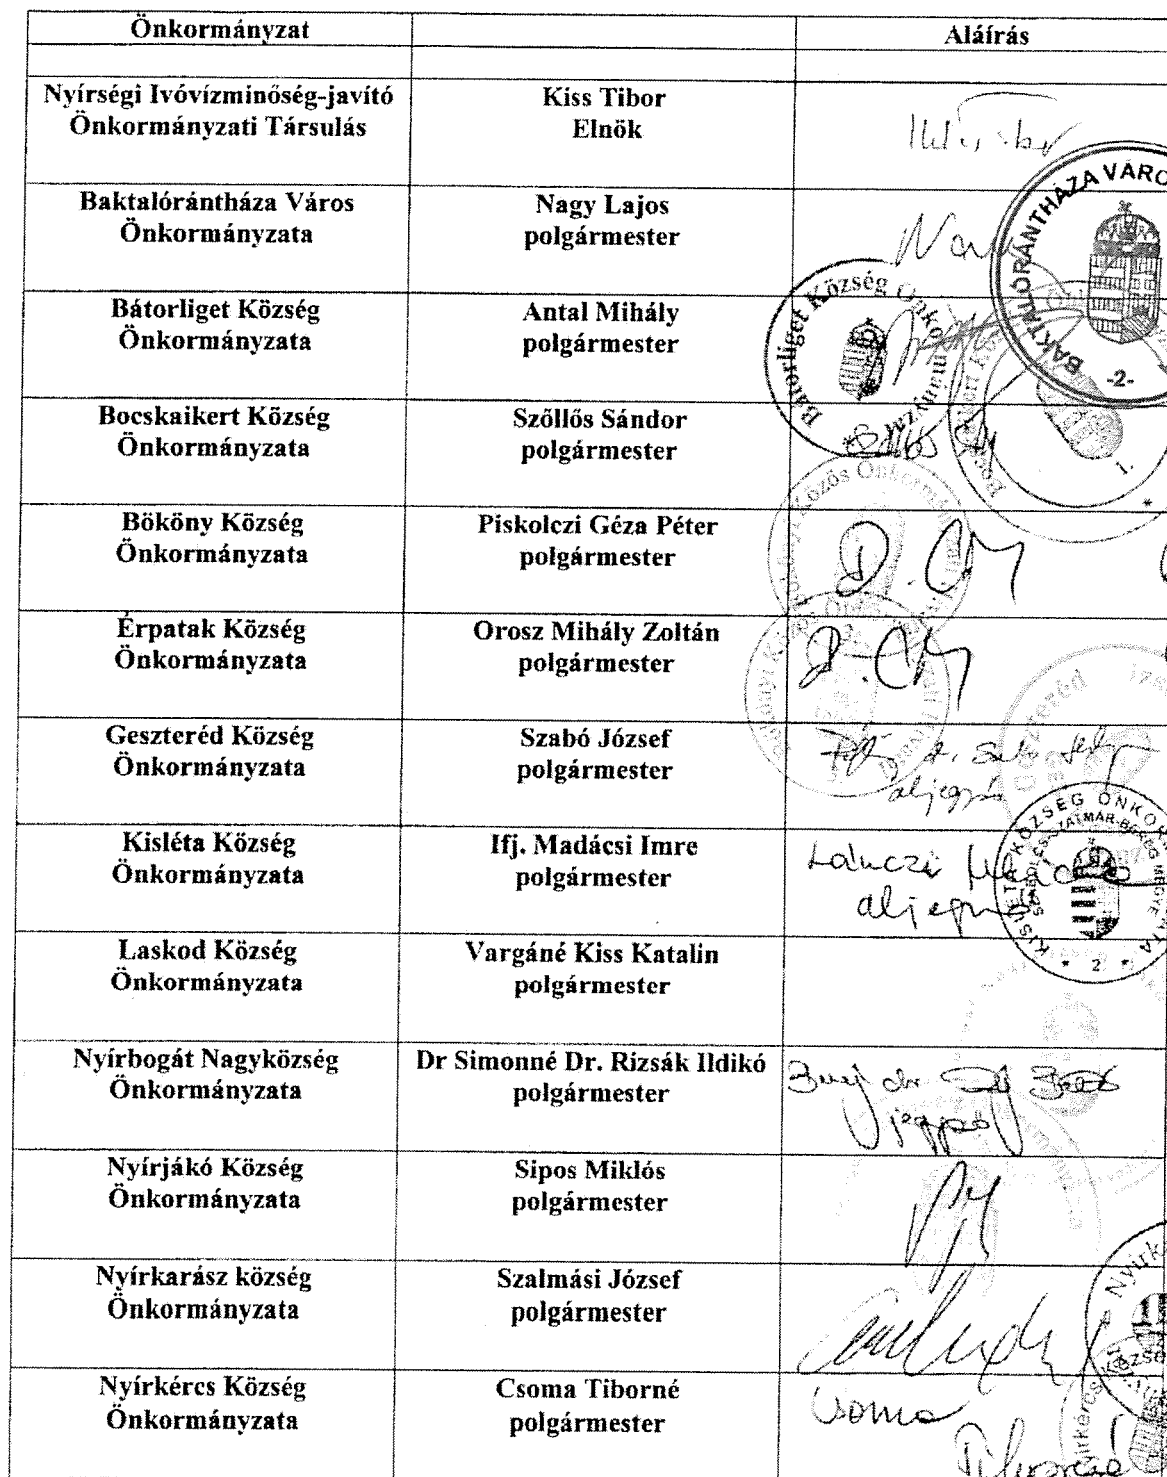 Önkormányzat
Aláírás
Nyírségi Ivóvízminőség-javító
Önkormányzati Társulás
Kiss Tibor
Elnök
Baktalórántháza Város
Önkormányzata
Nagy Lajos
polgármester
BAKTALÓRÁNTHÁZA VÁRO
-2-
Bátorliget Község
Önkormányzata
Antal Mihály
polgármester
Bátorliget Község Önkormányzat
*
Bocskaikert Község
Önkormányzata
Szőllős Sándor
polgármester
1.
*
Bököny Község
Önkormányzata
Piskolczi Géza Péter
polgármester
Érpatak Község
Önkormányzata
Orosz Mihály Zoltán
polgármester
Geszteréd Község
Önkormányzata
Szabó József
polgármester
aljegyző
Kisléta Község
Önkormányzata
Ifj. Madácsi Imre
polgármester
aljegyző
KISLÉTA KÖZSÉG ÖNKOR
SZABOLCS-SZATMÁR-BEREG MEGYE
* 2. *
Laskod Község
Önkormányzata
Vargáné Kiss Katalin
polgármester
Nyírbogát Nagyközség
Önkormányzata
Dr Simonné Dr. Rizsák Ildikó
polgármester
jegyző
Nyírjákó Község
Önkormányzata
Sipos Miklós
polgármester
Nyírkarász község
Önkormányzata
Szalmási József
polgármester
Nyírkércs Község
Önkormányzata
Csoma Tiborné
polgármester
Csoma
Tiborné